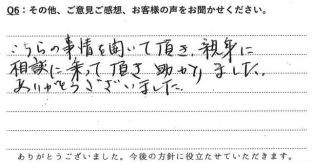 Q6：その他、ご意見ご感想、お客様の声をお聞かせください。
こちらの事情を聞いて頂き、親身に
相談に乗って頂き助かりました。
ありがとうございました。
ありがとうございました。今後の方針に役立たせていただきます。